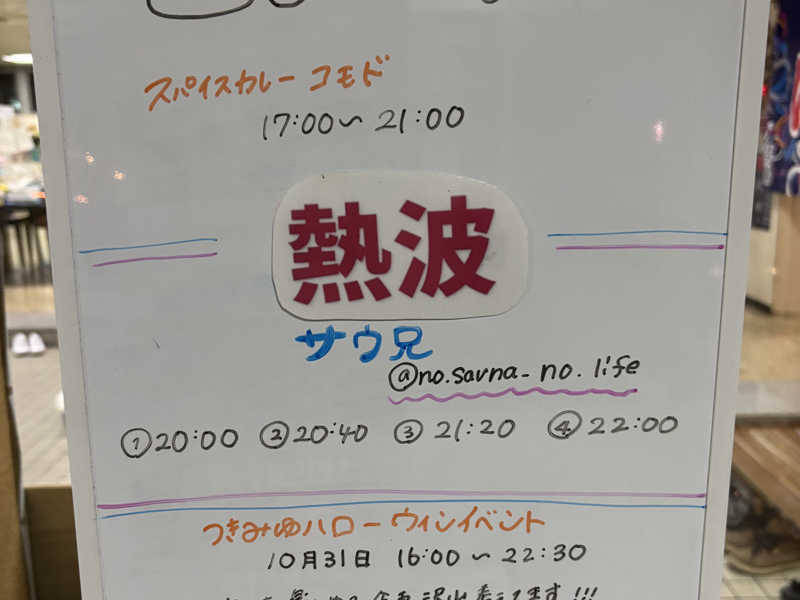 スパイスカレー コモド
17:00〜21:00
熱波
サウ兄
@no.sauna_no.life
①20:00 ②20:40 ③21:20 ④22:00
つきみゆハローウィンイベント
10月31日 16:00〜22:30
ます!!!